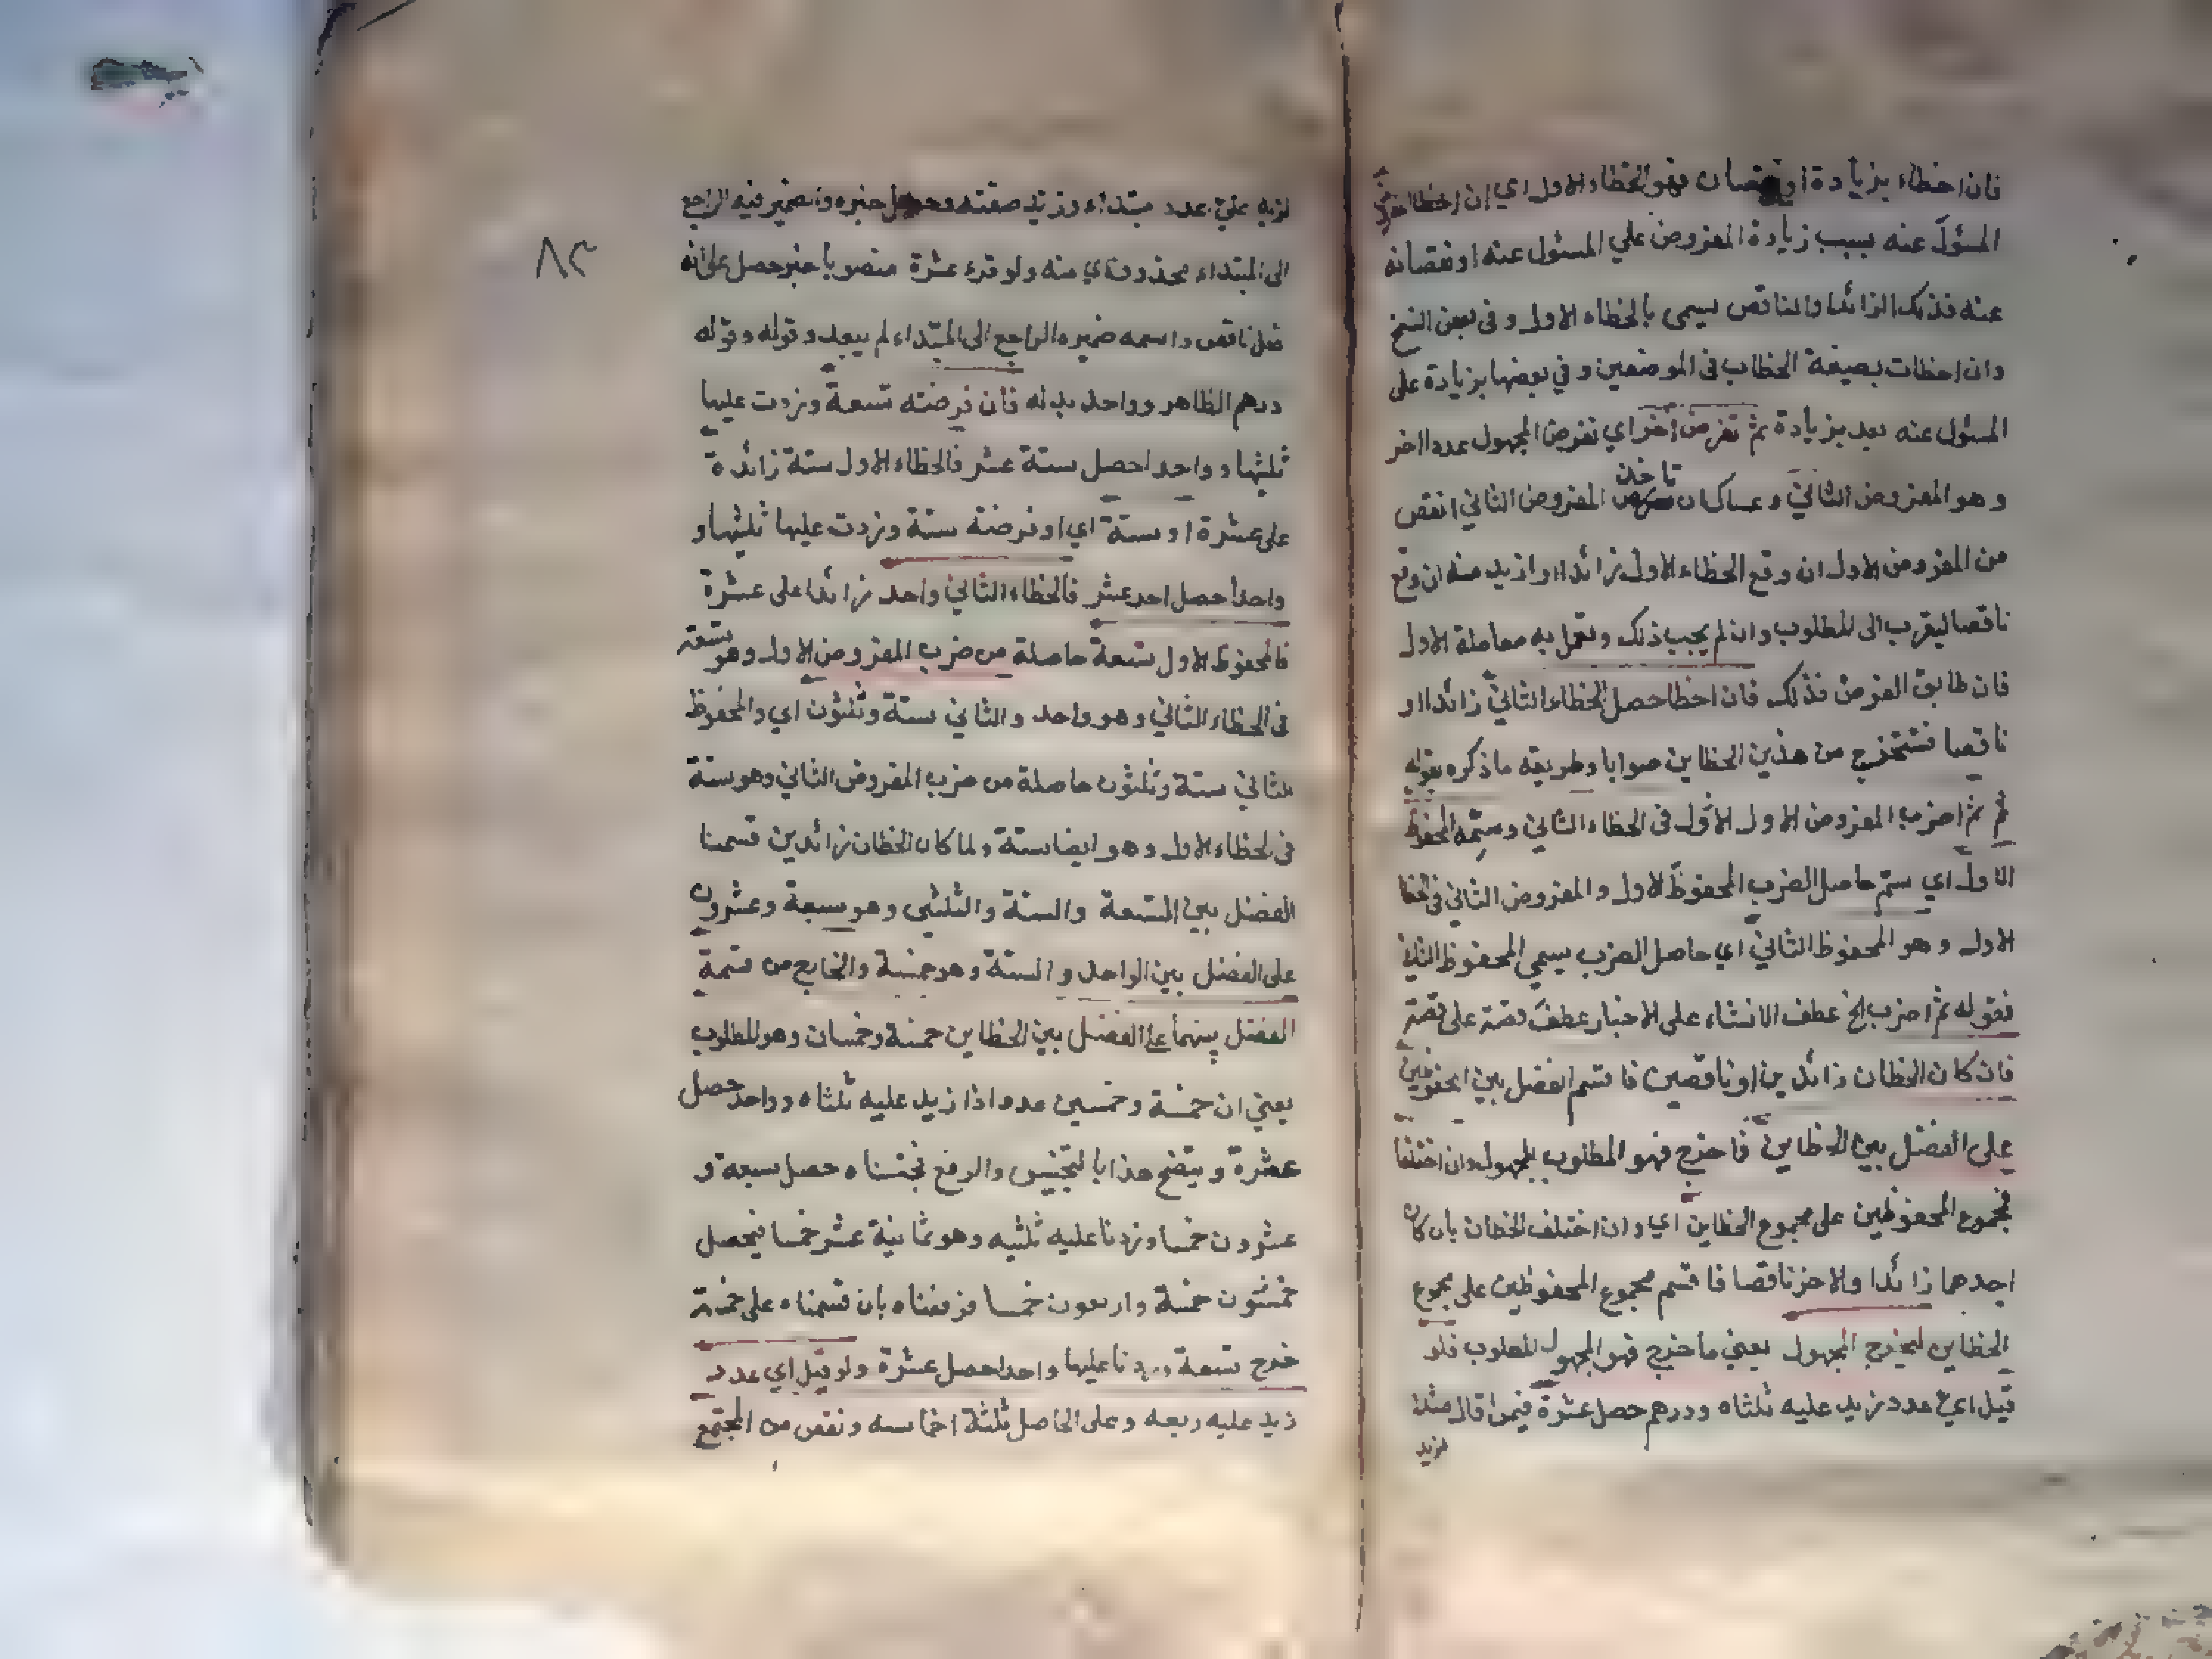 فان اخطاء بزيادة او نقصان فهو الخطاء الاول اي ان اخطا
المسؤل عنه بسبب زيادة المفروض علي المسئول عنه او نقصانه
عنه فذلك الزائد او الناقص يسمى بالخطاء الاول وفي بعض النسخ
وان اخطات بصيغة الخطاب في الموضعين وفي بعضها بزيادة على
المسئول عنه بعد بزيادة ثم تفرض اخر اي تفرض المجهول عددا اخر
وهو المفروض الثاني وعساك ان تاخذ المفروض الثاني انقص
من المفروض الاول ان وقع الخطاء الاول زائدا او ازيد منه ان وقع
ناقصا ليقرب الى المطلوب وان لم يجب ذلك وتعمل به معاملة الاول
فان طابق الفرض فذلك فان اخطا حصل الخطاء الثاني زائدا او
ناقصا فتستخرج من هذين الخطاين صوابا وطريقه ما ذكره بقوله
ثم اضرب المفروض الاول الاول في الخطاء الثاني وسمّه المحفوظ
الاول اي سمّ حاصل الضرب المحفوظ الاول والمفروض الثاني في الخطا
الاول وهو المحفوظ الثاني اي حاصل الضرب يسمي المحفوظ الثاني
فقوله ثم اضرب الخ عطف الانشاء على الاخبار عطف قصة على قصة
فان كان الخطان زائدين او ناقصين فاقسم الفضل بين المحفوظين
على الفضل بين الخطاين فاخرج فهو المطلوب المجهول وان اختلفا
فمجموع المحفوظين على مجموع الخطاين اي وان اختلف الخطان بان كان
احدهما زائدا والاخر ناقصا فاقسم مجموع المحفوظين على مجموع
الخطاين ليخرج المجهول يعني ما خرج فهو المجهول المطلوب فلو
قيل اي عدد زيد عليه ثلثاه ودرهم حصل عشرة
لزيد
٨٢
لزيد علي عدد مبتداء وزيد صفته وحصل خبره والضمير فيه الراجع
الى المبتداء محذوف اي منه ولو قرء عشرة منصوبا خبر حصل على انه
فعل ناقص واسمه ضميره الراجع الى المبتداء لم يبعد وقوله وقوله
درهم الظاهر وواحد بدله فان فرضته تسعة وزدت عليها
ثلثيها وواحدا حصل ستة عشر فالخطاء الاول ستة زائدة
على عشرة او ستة اي او فرضته ستة وزدت عليها ثلثيها و
واحدا حصل احد عشر فالخطاء الثاني واحد زائدا على عشرة
فالمحفوظ الاول تسعة حاصلة من ضرب المفروض الاول وهو تسعة
في الخطاء الثاني وهو واحد والثاني ستة وثلثون اي والمحفوظ
الثاني ستة وثلثون حاصلة من ضرب المفروض الثاني وهو ستة
في الخطاء الاول وهو ايضا ستة ولما كان الخطان زائدين قسمنا
الفضل بين التسعة والستة والثلثين وهو سبعة وعشرون
على الفضل بين الواحد والستة وهو خمسة والخارج من قسمة
الفضل بينهما على الفضل بين الخطاين خمسة وخمسان وهو المطلوب
يعني ان خمسة وخمسين عدد اذا زيد عليه ثلثاه وواحد حصل
عشرة ويتضح هذا بالتجنيس والرفع فجنسناه حصل سبعة و
عشرون خمسا وزدنا عليه ثلثيه وهو ثمانية عشر خمسا فيحصل
خمسة واربعون خمسا فرفعناه بان قسمناه على خمسة
خرج تسعة وزدنا عليها واحدا حصل عشرة ولو قيل اي عدد
زيد عليه ربعه وعلى الحاصل ثلثة اخماسه ونقص من المجتمع